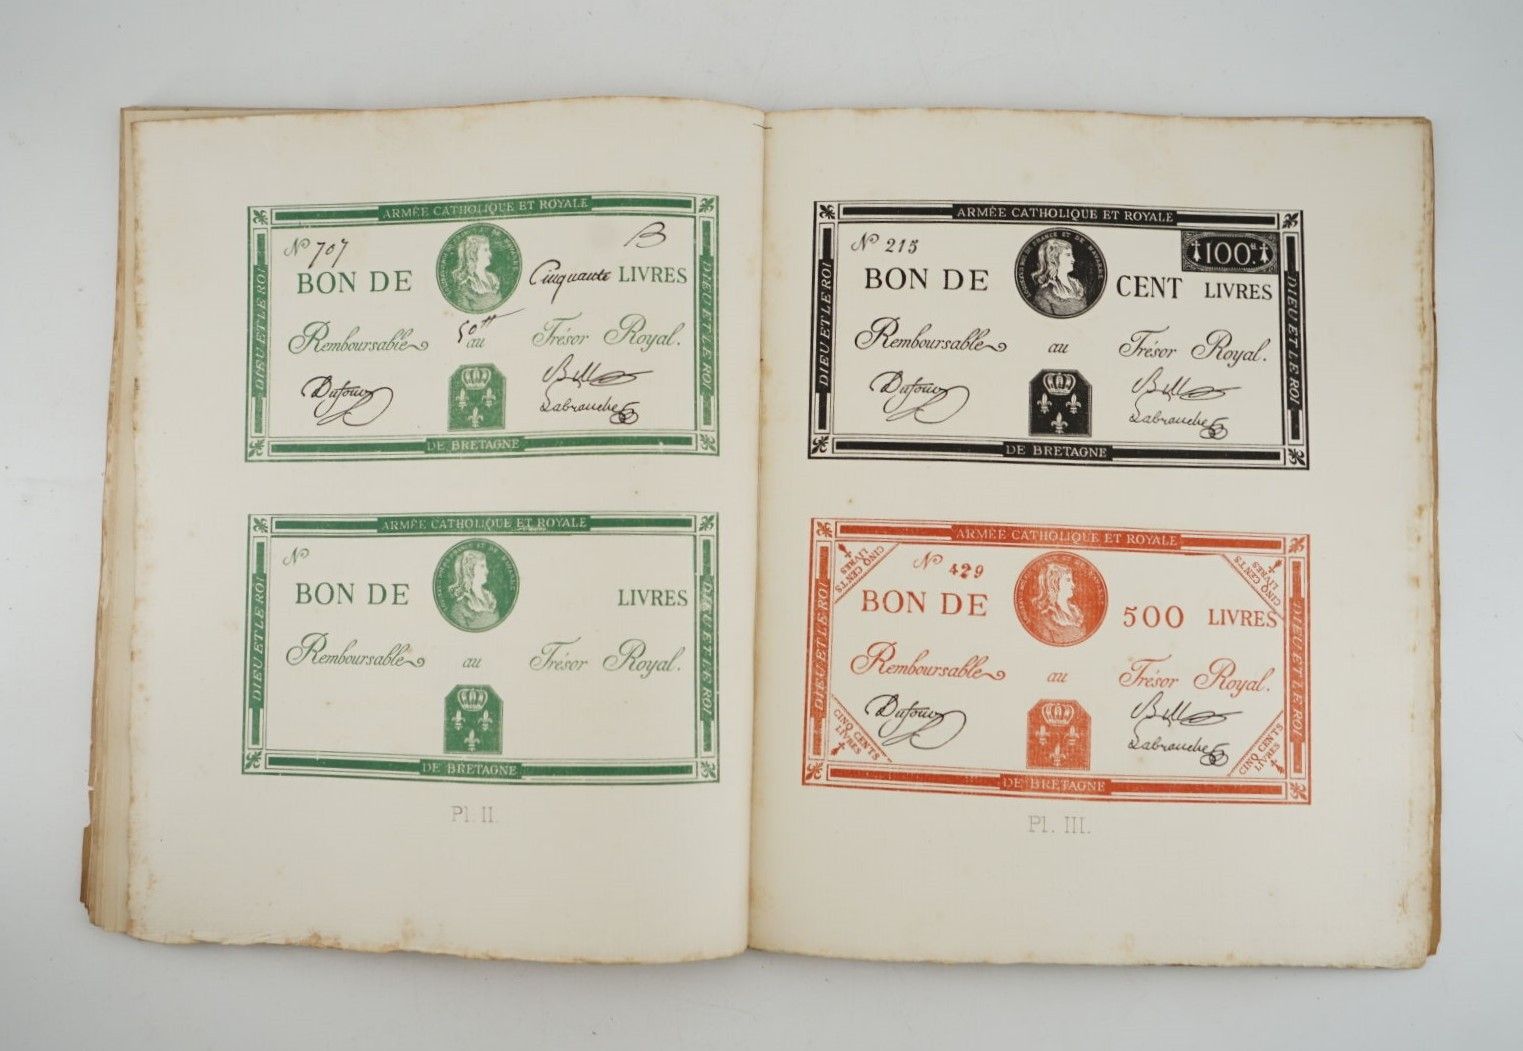 ARMÉE CATHOLIQUE ET ROYALE
N° 707 B
BON DE Cinquante LIVRES
50tt
Remboursable au Trésor Royal.
Dufour
Labranche
DIEU ET LE ROI
DIEU ET LE ROI
DE BRETAGNE
ARMÉE CATHOLIQUE ET ROYALE
N°
BON DE LIVRES
Remboursable au Trésor Royal.
DIEU ET LE ROI
DIEU ET LE ROI
DE BRETAGNE
Pl. II.
ARMÉE CATHOLIQUE ET ROYALE
N° 215
100tt
BON DE CENT LIVRES
Remboursable au Trésor Royal.
Dufour
Labranche
DIEU ET LE ROI
DIEU ET LE ROI
DE BRETAGNE
ARMÉE CATHOLIQUE ET ROYALE
CINQ CENTS
LIVRES
CINQ CENTS
LIVRES
N° 429
BON DE 500 LIVRES
Remboursable au Trésor Royal.
Dufour
Labranche
DIEU ET LE ROI
DIEU ET LE ROI
CINQ CENTS
LIVRES
CINQ CENTS
LIVRES
DE BRETAGNE
Pl. III.